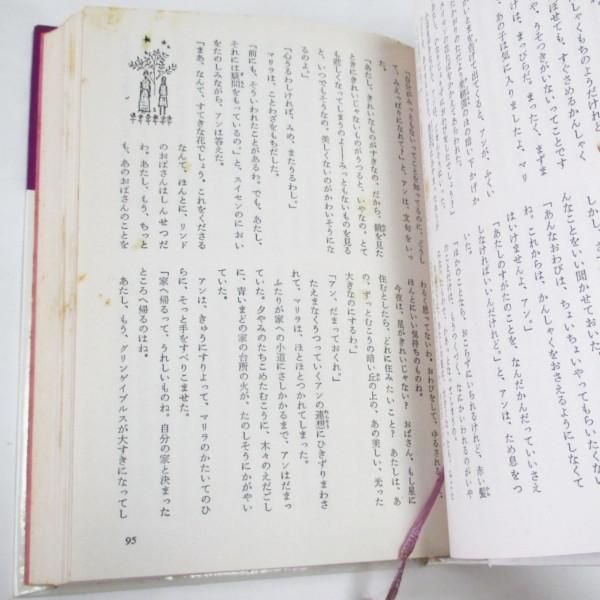 しゃくもちのようだけれど
せても、すぐさめるかんしゃく
、うそつきがいないってことです
は、まっぴらだ。まったく、まずま
、あの子は気に入りましたよ、マリ
んなことをいい聞かせて
「あんなおわびは、ちょいちょいやってもらいたくな
ね。これからは、かんしゃくをおさえるようにしなくて
はいけませんよ、アン。」
「あたしのすがたのことを、なんだかんだっていいさえ
しなければいいんだけれど。」と、アンは、ため息をつ
いた。
「ほかのことなら、おこらずにいられるけれど、赤い髪
「自分がみっともないってことを知ってるのに、どうし
て、みえっぱりになれて？」と、アンは、文句をいっ
た。
「あたし、きれいなものがすきなの。だから、鏡を見た
ときにきれいじゃないものがうつると、いやなの。とて
も悲しくなってしまうのよ――みっともないものを見る
と、いつでもそうなの。美しくないのがかわいそうにな
るのよ。」
「心うるわしければ、みめ、またうるわし。」
マリラは、ことわざをもちだした。
「前にも、そういわれたことがあるわ。でも、あたし、
それには疑問をもっているの。」と、スイセンのにおい
をたのしみながら、アンは答えた。
「まあ、なんて、すてきな花でしょう。これをくださる
なんて、ほんとに、リンド
のおばさんはしんせつだ
わ。あたし、もう、ちっと
も、あのおばさんのことを
わるく思ってないわ。おわびをして、ゆるされる
ほんとにいい気持ちのものね。
今夜は、星がきれいじゃない？　おばさん、もし星に
住むとしたら、どれに住みたいこと？　あたしは、あ
の、ずっとむこうの暗い丘の上の、あの美しい、光った
大きなのにするわ。」
「アン、だまっておくれ。」
たえまなくうつっていくアンの連想にひきずりまわさ
れて、マリラは、ほとほとつかれてしまった。
ふたりが家への小道にさしかかるまで、アンはだまっ
ていた。夕やみのたちこめたむこうに、木々のえだごし
に、青いまどの家の台所の火が、たのしそうにかがやい
ていた。
アンは、きゅうにすりよって、マリラのかたいてのひ
らに、そっと手をすべりこませた。
「家へ帰るって、うれしいものね。自分の家と決まった
ところへ帰るのはね。
あたし、もう、グリンゲイブルスが大すきになってし
95